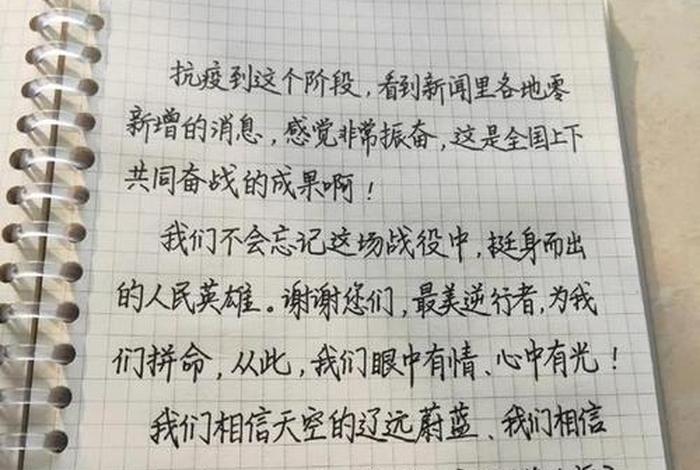 抗疫到这个阶段，看到新闻里各地零
新增的消息，感觉非常振奋，这是全国上下
共同奋战的成果啊！
我们不会忘记这场战役中，挺身而出
的人民英雄。谢谢您们，最美逆行者，为我
们拼命，从此，我们眼中有情、心中有光！
我们相信天空的辽远蔚蓝、我们相信